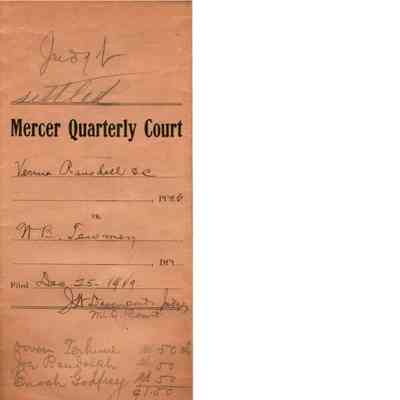 Judgt
settled
Mercer Quarterly Court
Vernie Ransdell &c
, Pl'ff
vs.
W B.
, Dft.
Filed Dec 25 - 1919
Judge
M.Q. Court
Terhune 50
Joe Randolph 50
Enoch Godfrey 50
$1.50